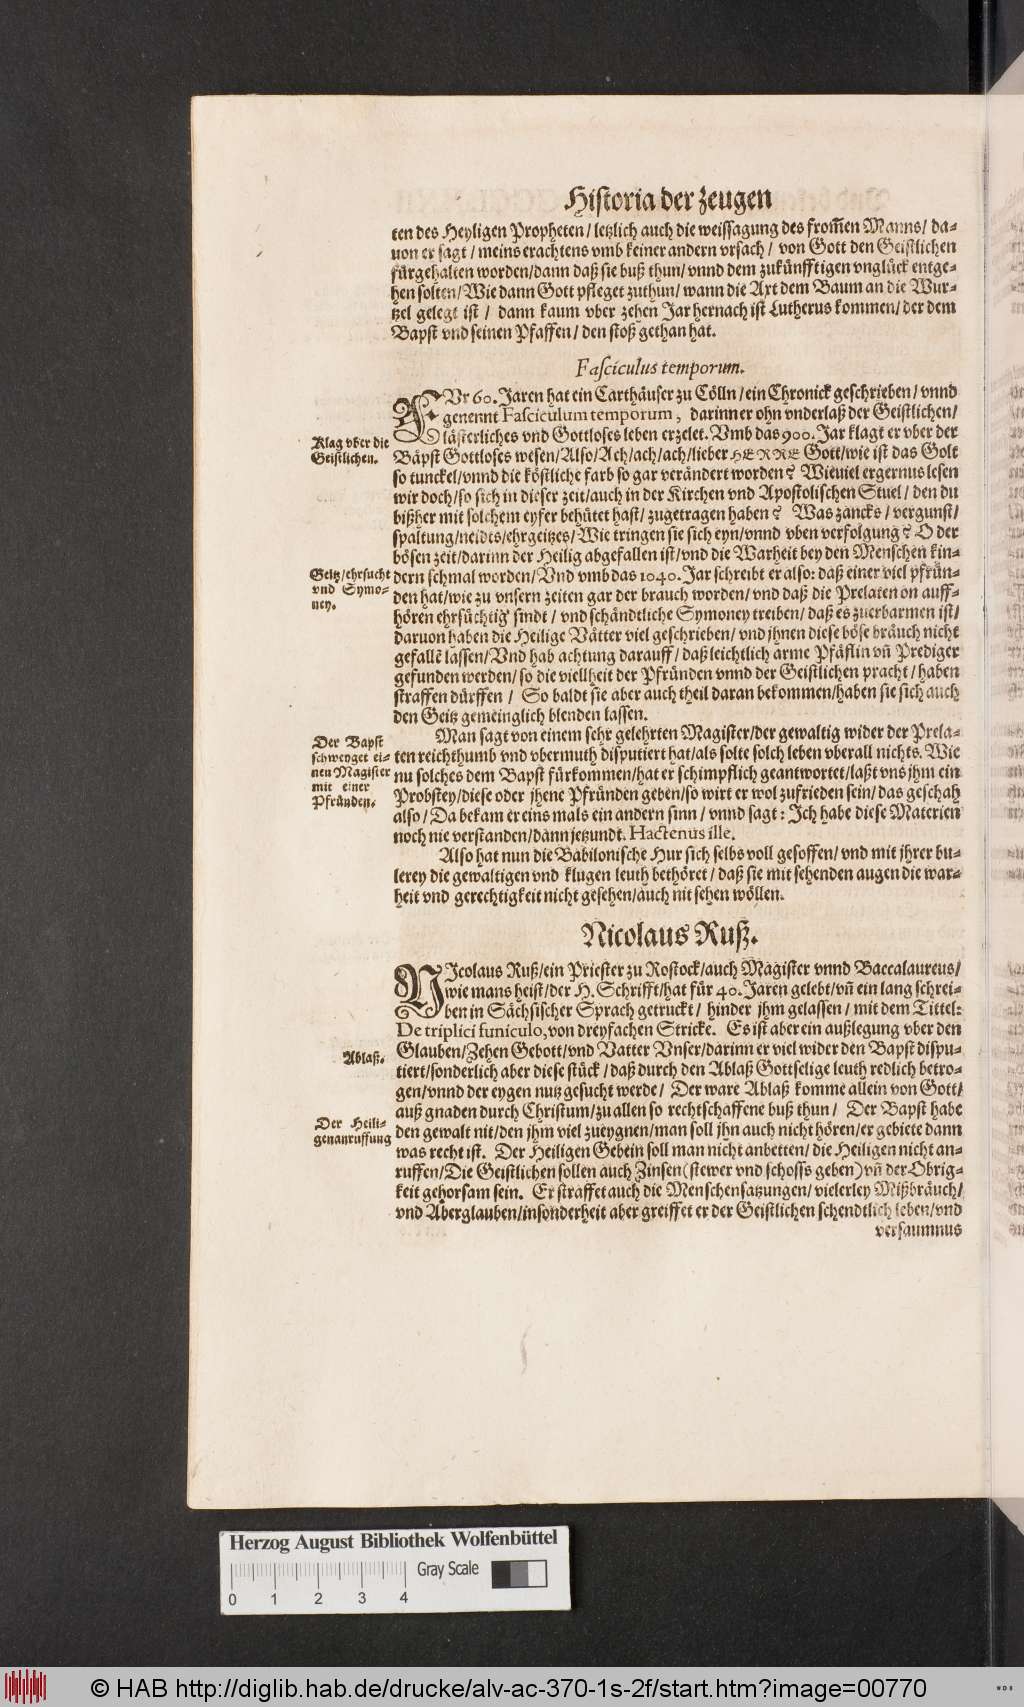 Historia der Zeugen
ten des Heyligen Propheten/ letzlich auch die weissagung des from̃en Manns/ da-
uon er sagt/ meins erachtens vmb keiner andern vrsach/ von Gott den Geistlichen
fürgehalten worden/ dann daß sie buß thun/ vnnd dem zukünfftigen vnglück entge-
hen solten/ Wie dann Gott pfleget zuthun/ wann die Axt dem Baum an die Wur-
tzel gelegt ist/ dann kaum vber zehen Jar hernach ist Lutherus kommen/ der dem
Bapst vnd seinen Pfaffen/ den stoß gethan hat.
Fasciculus temporum.
FVr 60. Jaren hat ein Carthäuser zu Cölln/ ein Chronick geschrieben/ vnnd
genennt Fasciculum temporum, darinn er ohn vnderlaß der Geistlichen/
lästerliches vnd Gottloses leben erzelet. Vmb das 900. Jar klagt er vber der
Klag vber die
Geistlichen.
Bäpst Gottloses wesen/ Also/ Ach/ ach/ ach/ lieber HERRE Gott/ wie ist das Golt
so tunckel/ vnnd die köstliche farb so gar verändert worden? Wieuiel ergernus lesen
wir doch/ so sich in dieser zeit/ auch in der Kirchen vnd Apostolischen Stuel/ den du
bißher mit solchem eyfer behütet hast/ zugetragen haben? Was zancks/ vergunst/
spaltung/ neidts/ ehrgeitzes/ Wie tringen sie sich eyn/ vnnd vben verfolgung? O der
bösen zeit/ darinn der Heilig abgefallen ist/ vnd die Warheit bey den Menschen kin-
Geitz/ ehrsucht
vnd Symo-
ney.
dern schmal worden/ Vnd vmb das 1040. Jar schreibt er also: daß einer viel pfrün-
den hat/ wie zu vnsern zeiten gar der brauch worden/ vnd daß die Prelaten on auff-
hören ehrsüchtig sindt/ vnd schändtliche Symoney treiben/ daß es zuerbarmen ist/
daruon haben die Heilige Vätter viel geschrieben/ vnd jhnen diese böse bräuch nicht
gefallẽ lassen/ Vnd hab achtung darauff/ daß leichtlich arme Pfäflin vñ Prediger
gefunden werden/ so die viellheit der Pfründen vnnd der Geistlichen pracht/ haben
straffen dürffen/ So baldt sie aber auch theil daran bekommen/ haben sie sich auch
den Geitz gemeinglich blenden lassen.
Man sagt von einem sehr gelehrten Magister/ der gewaltig wider der Prela-
Der Bapst
schweyget ei-
nen Magister
mit einer
Pfründen.
ten reichthumb vnd vbermuth disputiert hat/ als solte solch leben vberall nichts. Wie
nu solches dem Bapst fürkommen/ hat er schimpflich geantwortet/ laßt vns jhm ein
Probstey/ diese oder jhene Pfründen geben/ so wirt er wol zufrieden sein/ das geschah
also/ Da bekam er eins mals ein andern sinn/ vnnd sagt: Ich habe diese Materien
noch nie verstanden/ dann jetzundt. Hactenus ille.
Also hat nun die Babilonische Hur sich selbs voll gesoffen/ vnd mit jhrer bu-
lerey die gewaltigen vnd klugen leuth bethöret/ daß sie mit sehenden augen die war-
heit vnd gerechtigkeit nicht gesehen/ auch nit sehen wöllen.
Nicolaus Ruß.
NIcolaus Ruß/ ein Priester zu Rostock/ auch Magister vnnd Baccalaureus/
wie mans heist/ der H. Schrifft/ hat für 40. Jaren gelebt/ vñ ein lang schrei-
ben in Sächsischer Sprach getruckt/ hinder jhm gelassen/ mit dem Tittel:
De triplici funiculo, von dreyfachen Stricke. Es ist aber ein außlegung vber den
Ablaß.
Glauben/ Zehen Gebott/ vnd Vatter Vnser/ darinn er viel wider den Bapst dispu-
tiert/ sonderlich aber diese stück/ daß durch den Ablaß Gottselige leuth redlich betro-
gen/ vnnd der eygen nutz gesucht werde/ Der ware Ablaß komme allein von Gott/
auß gnaden durch Christum/ zu allen so rechtschaffene buß thun/ Der Bapst habe
Der Heili-
genanruffung
den gewalt nit/ den jhm viel zueygnen/ man soll jhn auch nicht hören/ er gebiete dann
was recht ist. Der Heiligen Gebein soll man nicht anbetten/ die Heiligen nicht an-
ruffen/ Die Geistlichen sollen auch Zinsen (stewer vnd schosss geben) vñ der Obrig-
keit gehorsam sein. Er straffet auch die Menschensatzungen/ vielerley Mißbräuch/
vnd Aberglauben/ insonderheit aber greiffet er der Geistlichen schendtlich leben/ vnd
versaumnus
Herzog August Bibliothek Wolfenbüttel
Gray Scale
0 1 2 3 4
© HAB http://diglib.hab.de/drucke/alv-ac-370-1s-2f/start.htm?image=00770